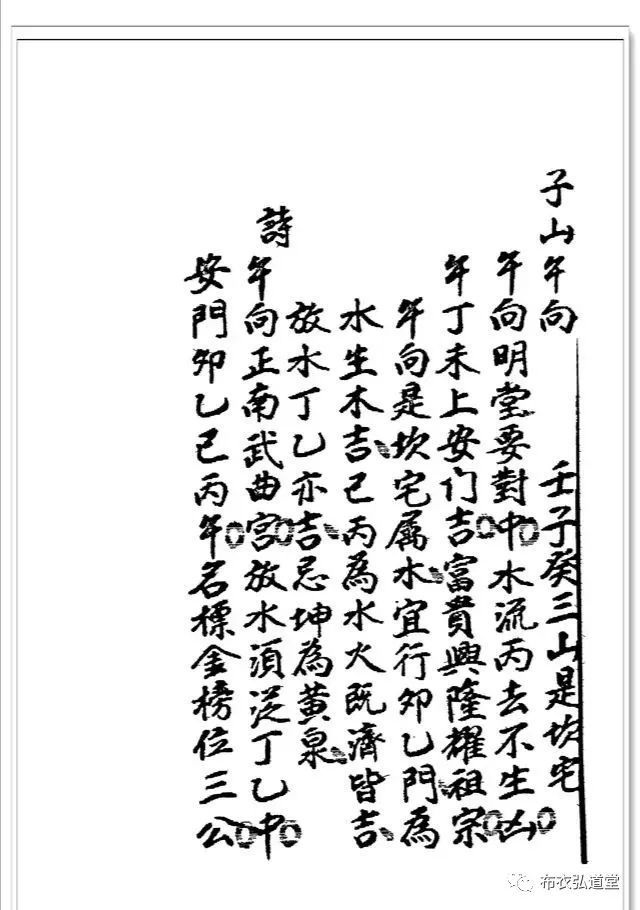 子山午向 壬子癸三山是坎宅
午向明堂要對中水流丙去不生凶
午丁未上安门吉富貴興隆耀祖宗
午向是坎宅属水宜行卯乙門為
水生木吉巳丙為水火既濟皆吉
放水丁乙亦吉忌坤為黃泉
詩
午向正南武曲宮放水須從丁乙中
安門卯乙巳丙午名標金榜位三公
布衣弘道堂